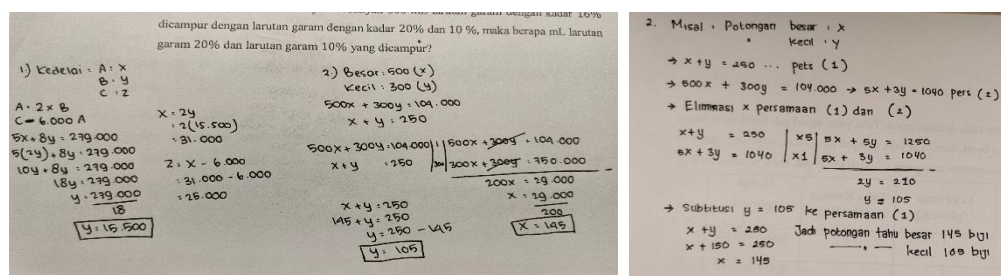 larutan garam dengan kadar 16%
dicampur dengan larutan garam dengan kadar 20% dan 10 %, maka berapa mL larutan
garam 20% dan larutan garam 10% yang dicampur?
1.) Kedelai : A : x
B : y
C : z
A = 2 x B
C = 6.000 A
5x + 8y = 279.000
5(2y) + 8y = 279.000
10y + 8y = 279.000
18y = 279.000
y = 279.000
18
y = 15.500
x = 2y
= 2(15.500)
= 31.000
z = x - 6.000
= 31.000 - 6.000
= 25.000
2.) Besar : 500 (x)
Kecil : 300 (y)
500x + 300y = 104.000
x + y = 250
500x + 300y = 104.000 | 1 | 500x + 300y = 104.000
x + y = 250 | 300 | 300x + 300y = 750.000
200x = 29.000
x = 29.000
200
x = 145
x + y = 250
145 + y = 250
y = 250 - 145
y = 105
2. Misal : Potongan besar : x
" kecil : y
→ x + y = 250 ... pers (1)
→ 500x + 300y = 104.000 → 5x + 3y = 1040 pers (2)
→ Eliminasi x persamaan (1) dan (2)
x + y = 250 | x5 | 5x + 5y = 1250
5x + 3y = 1040 | x1 | 5x + 3y = 1040
2y = 210
y = 105
→ Subtitusi y = 105 ke persamaan (1)
x + y = 250
x + 150 = 250
x = 145
Jadi potongan tahu besar 145 biji
— " — kecil 105 biji